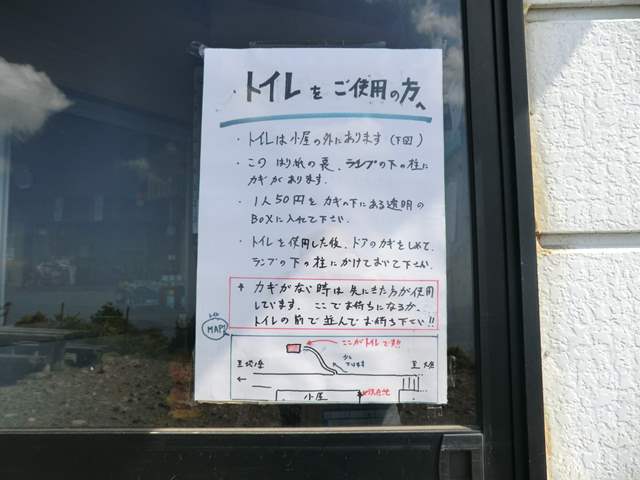 トイレをご使用の方へ
・トイレは小屋の外にあります(下図)
・このはり紙の裏、ランプの下の柱に
カギがあります。
・1人50円をカギの下にある透明の
BOXに入れて下さい。
・トイレを使用した後、ドアのカギをしめて、
ランプの下の柱にかけておいて下さい。
* カギがない時は先にきた方が使用
しています。ここでお待ちになるか、
トイレの前で並んでお待ち下さい!!
MAP
ここがトイレです!!
小屋
現在地